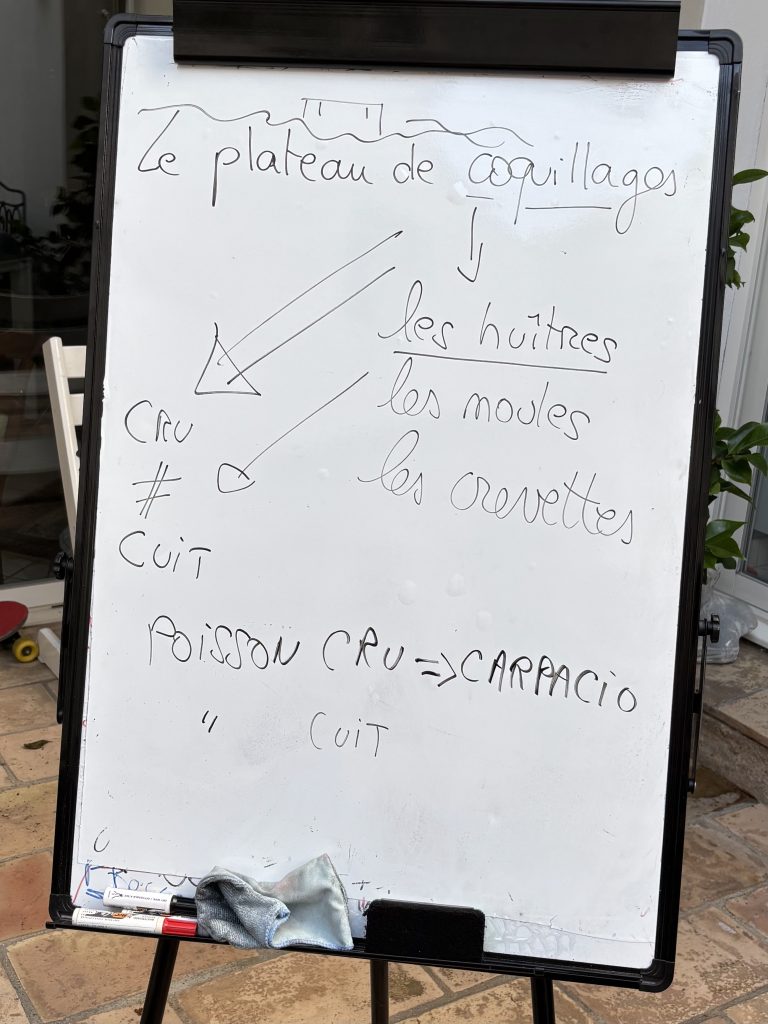 Le plateau de coquillages
les huîtres
les moules
les crevettes
CRU
≠
CUIT
POISSON CRU => CARPACIO
" CUIT